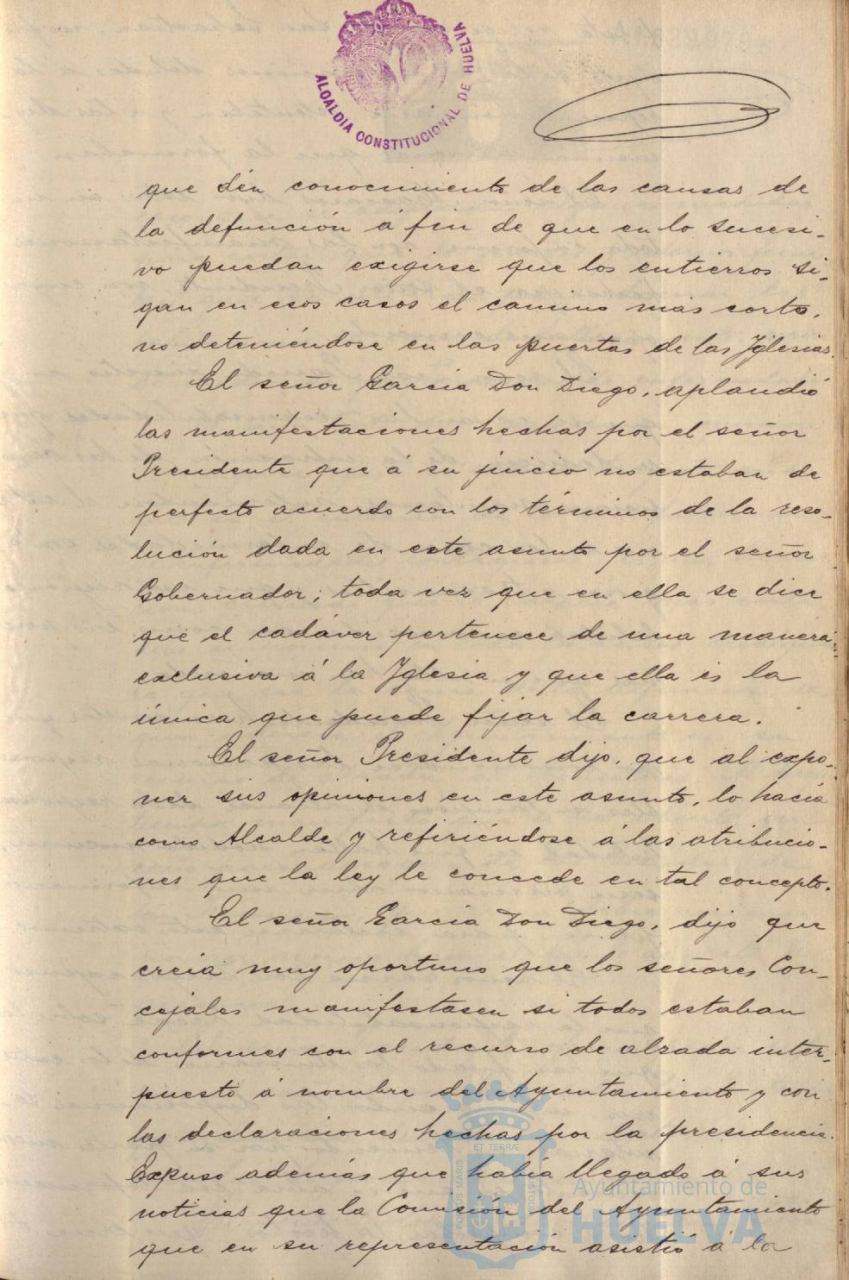 ALCALDIA CONSTITUCIONAL DE HUELVA
que dén conocimiento de las causas de
la defunción á fin de que en lo sucesi-
vo puedan exigirse que los entierros si-
gan en esos casos el camino mas corto,
no deteniéndose en las puertas de las Yglesias.
El señor García Don Diego, aplaudió
las manifestaciones hechas por el señor
Presidente que á su juicio no estaban de
perfecto acuerdo con los términos de la reso-
lución dada en este asunto por el señor
Gobernador; toda vez que en ella se dice
que el cadáver pertenece de una manera
exclusiva á la Yglesia y que ella es la
única que puede fijar la carrera.
El señor Presidente dijo, que al expo-
ner sus opiniones en este asunto, lo hacía
como Alcalde y refiriéndose á las atribucio-
nes que la ley le concede en tal concepto.
El señor García Don Diego, dijo que
creía muy oportuno que los señores Con-
cejales manifestasen si todos estaban
conformes con el recurso de alzada inter-
puesto á nombre del Ayuntamiento y con
las declaraciones hechas por la presidencia.
Expuso además que había llegado á sus
noticias que la Comisión del Ayuntamiento
que en su representación asistió á la
Ayuntamiento de
HUELVA